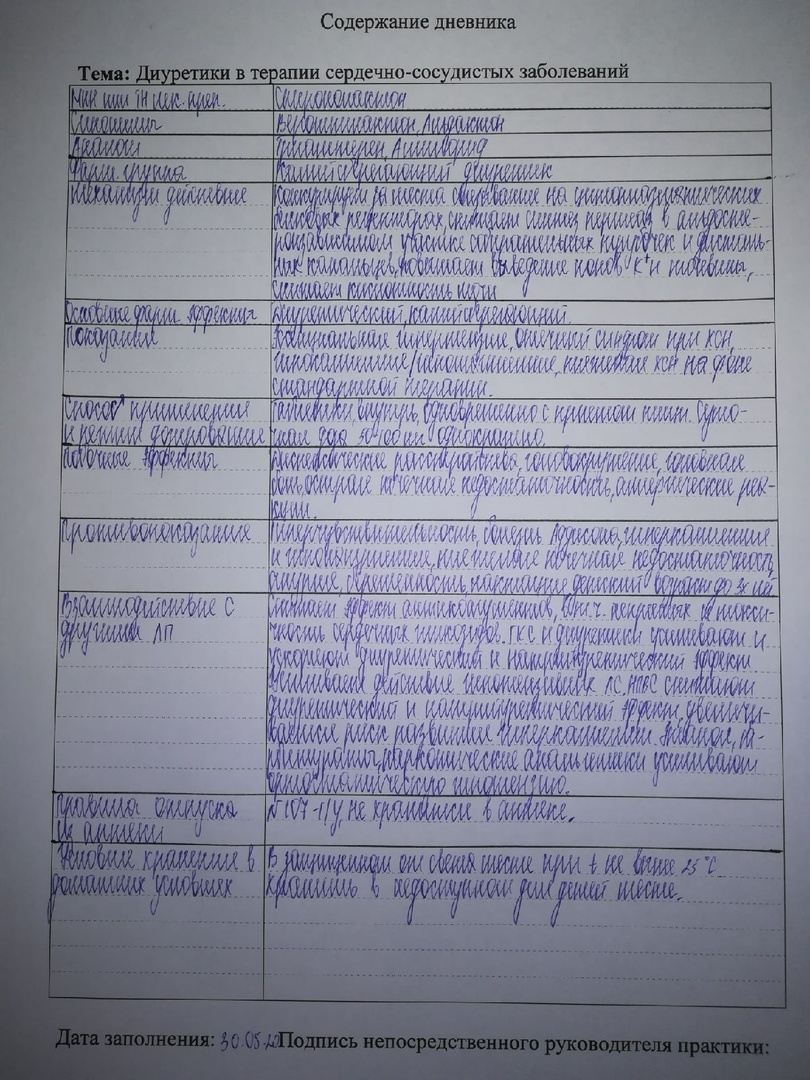 Содержание дневника
Тема: Диуретики в терапии сердечно-сосудистых заболеваний
МНН или ТН лек. преп.
Спиронолактон
Синонимы
Верошпилактон, Альдактон
Аналоги
Триамтерен, Амилорид
Фарм. группа
Калийсберегающий диуретик
Механизм действие
Конкурируя за места связывание на цитоплазматических
белковых рецепторах, снижает синтез пермеаз в альдосте-
ронзависимом участке собирательных трубочек и дисталь-
ных канальцев, повышает выведение ионов K⁺ и мочевины,
снижает кислотность мочи
Основные фарм. эффекты
Диуретический, калийсберегающий.
Показание
гипертензие, отечный синдром при ХСН,
на фоне
стандартной терапии.
Способ применения
Таблетки, внутрь, одновременно с приемом пищи. Суто-
и режим дозирование
чная доза 50-100 мг однократно.
Побочные эффекты
Диспепсические расстройства, головокружение, головная
боль, острая почечная недостаточность, аллергические реак-
ции.
Противопоказание
Гиперчувствительность, болезнь Аддисона, гиперкалиемие
и гипонатриемие, почечная недостаточность,
анурия, беременность, лактация, детский возраст до 3х лет
Взаимодействие с
Снижает эффект антикоагулянтов, в т.ч. непрямых и токси-
другими ЛП
чность сердечных гликозидов. ГКС и диуретики усиливают и
ускоряют диуретический и натрийуретический эффект.
Усиливает действие гипотензивных ЛС. НПВС снижают
диуретический и натрийуретический эффект, увеличи-
вается риск развития гиперкалиемии. Этанол, ба-
рбитураты, наркотические анальгетики усиливают
ортостатическую гипотензию.
Правила отпуска
№ 107-1/У, не хранится в аптеке.
из аптеки
Условие хранение в
В защищенном от света месте при t не выше 25 °С
домашних условиях
Хранить в недоступном для детей месте.
Дата заполнения: 30.05.22 Подпись непосредственного руководителя практики: